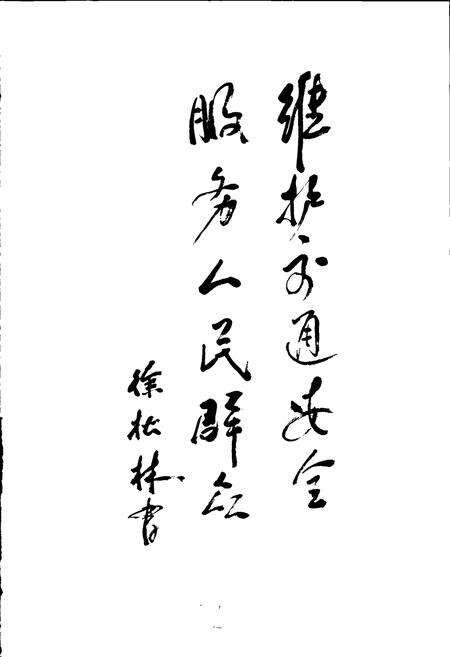 维护交通安全
服务人民群众
徐松林书